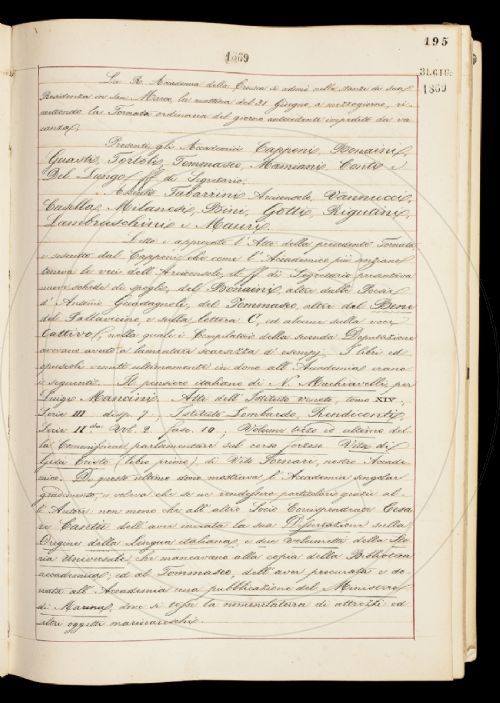 195
1869
31. GIU.
1869
La R. Accademia della Crusca si adunò nelle stanze di sua
Residenza in San Marco, la mattina del 31 Giugno, a mezzogiorno, ri-
mettendo la Tornata ordinaria del giorno antecedente impedito da va-
canza.
Presenti gli Accademici Capponi, Bonaini,
Guasti, Tortoli, Tommaseo, Mamiani, Conti e
Del Lungo ff. di Segretario.
Assenti Tabarrini Arciconsolo, Vannucci,
Casella, Milanesi, Bini, Gotti, Rigutini,
Lambruschini e Mauri.
Letto e approvato l'Atto della precedente Tornata,
e sentito dal Capponi che come l'Accademico più anziano
teneva le veci dell'Arciconsolo, il ff. di Segretario presentava
nuove schede di spoglio, del Bonaini, altre dalle Poesie
d'Antonio Guadagnoli, del Tommaseo, altre dal Bene
del Pallavicino, e sulla lettera C, ed alcune sulla voce
Cattivo, nella quale i Compilatori della seconda Deputazione
avevano avuto a lamentare scarsezza di esempj. I libri ed
opuscoli venuti ultimamente in dono all'Accademia erano
i seguenti. Il pensiero italiano di N. Machiavelli, per
Luigi Mancini. Atti dell'Istituto Veneto, tomo XIV,
Serie III disp. 7. Istituto Lombardo, Rendiconti,
Serie II. Vol. 2 fasc. 10. Volume terzo ed ultimo del-
la Commissione parlamentare sul corso forzoso. Vita di
Gesù Cristo (libro primo), di Vito Fornari, nostro Accade-
mico. Di questo ultimo dono mostrava l'Accademia singolar
gradimento, e voleva che se ne rendessero particolari grazie al-
l'Autore non meno che all'altro Socio Corrispondente Cesa-
re Cantù dell'aver inviata la sua Dissertazione sulla
Origine della lingua italiana, e due volumetti della Sto-
ria Universale che mancavano alla copia della Biblioteca
accademica; ed al Tommaseo, dell'aver procurata e do-
nata all'Accademia una pubblicazione del Ministero
di Marina, dove si tesse la nomenclatura di attrezzi ed
altri oggetti marinareschi.